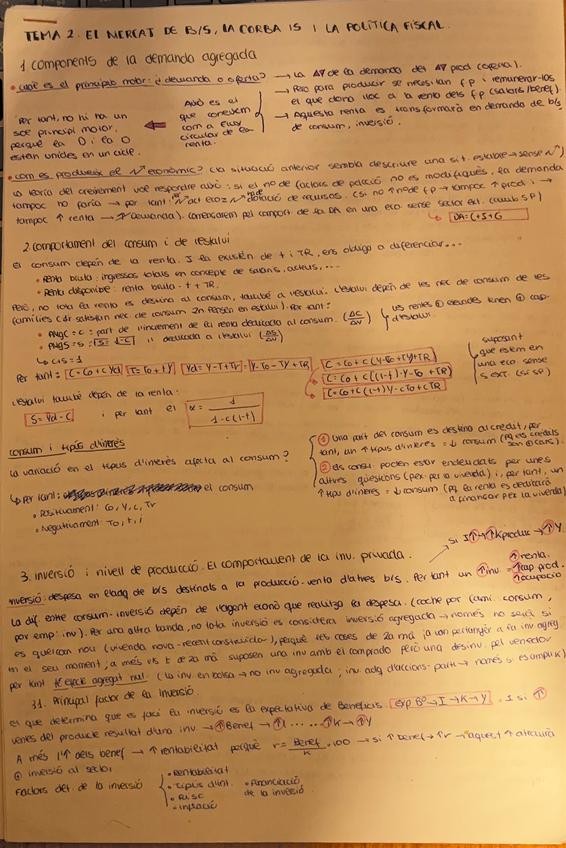 TEMA 2. EL MERCAT DE B/S, LA CORBA IS I LA POLÍTICA FISCAL.
1 components de la demanda agregada
• Què és el principal motor: ¿demanda o oferta?
→ La ΔY de la demanda del ΔY prod (oferta).
→ Però para producir se necesitan f.p i remunerar-los
el que dona lloc a la renta dels f.p (salaris/benef).
→ Aquesta renta es transformarà en demanda de b/s
de consum, inversió.
Això és el
que coneixem
com a flux
circular de la
renta.
Per tant, no hi ha un
sol principal motor,
perquè la D i la O
estan unides en un cicle.
• Com es produeix el ↗ econòmic? (la situació anterior sembla descriure una sit. estable → sense ↗)
La teoria del creixement vol respondre això: si el nº de factors de pacció no es modifiqués, la demanda
tampoc ho faria → per tant ↗ act eco = ↗ dotació de recursos. (si no ↑ nº de f.p → tampoc ↑ prod i →
tampoc ↑ renta → ↗ Demanda). Comencarem pel comport de la DA en una eco sense sector ext.
DA = C+I+G
2. comportament del consum i de l'estalvi
El consum depèn de la renta. I la existèn de t i TR, ens obliga a diferenciar...
• Renta bruta: ingressos totals en concepte de salaris, actius,...
• Renta disponible: renta bruta - t + TR.
Però, no tota la renta es destina al consum, també a l'estalvi. L'estalvi depèn de les nec de consum de les
famílies (sir satisfan nec de consum 2n pensen en estalvi). Per tant:
• PMgC = c: part de l'increment de la renta dedicada al consum. (ΔC/ΔY)
• PMgS = s: S = 1-C " dedicada a l'estalvi (ΔS/ΔY)
↳ C+S=1
les rentes ⊕ elevades tenen ⊕ cap.
d'estalvi.
Per tant: C = Co + cYd T = To + tY Yd = Y - T + Tr = Y - To - TY + TR
C = Co + c(Y-To+TY+TR)
C = Co + c((1-t)·Y-To + TR)
C = Co + c(1-t)Y - cTo + cTR
suposant
que estem en
una eco sense
s. ext. (s: SP)
L'estalvi també depèn de la renta:
S = Yd - C i per tant el α = 1 / 1-c(1-t)
Consum i tipus d'interès
La variació en el tipus d'interès afecta al consum?
① Una part del consum es destina al crèdit, per
tant, un ↑ tipus d'interès = ↓ consum (pq els crèdits
són + cars).
② Els consu poden estar endeutats per unes
altres qüestions (per ex la vivenda) i, per tant, un
↑ tipus d'interès = ↓ consum (pq la renta es dedicarà
a financiar per la vivenda)
↳ Per tant: el consum
• Positivament: Co, Y, c, Tr
• Negativament: To, t, i
3. Inversió i nivell de producció. El comportament de la inv. privada.
si I↑ → ↑K produc → ↑Y
Inversió: despesa en l'adq de b/s destinats a la producció-venta d'altres b/s. Per tant un ↑ inv =
↑ renta.
↑ cap prod.
↑ ocupacio
La dif entre consum-inversió depèn de l'agent econò que realitza la despesa. (coche per fam: consum,
per emp: inv). Per una altra banda, no tota inversió es considera inversió agregada → només ho serà si
es quelcom nou (vivenda nova-recent construïda), perquè les cases de 2a mà ja van pertànyer a la inv agreg
en el seu moment, a més les t de 2a mà suposen una inv amb el comprador però una desinv. pel venedor
per tant té efecte agregat nul. (la inv en bolsa → no inv agregada; inv. adq d'accions-part → només si és ampli K)
3.1. Principal factor de la inversió.
El que determina que es faci la inversió és la Expectativa de Beneficis. exp Bº → I → K → Y. I si ↑
venes del producte resultat d'una inv. → ↑Benef → ↑I .... ↑K → ↑Y
A més l'↑ dels benef → ↑ rentabilitat perquè r = Benef/K · 100 → si ↑ benef → ↑r → aquest ↑ atraurà
⊕ inversió al sector
Factors det. de la inversió
• Rentabilitat
• Tipus d'int.
• Risc
• Inflació
• Financiació
de la inversió